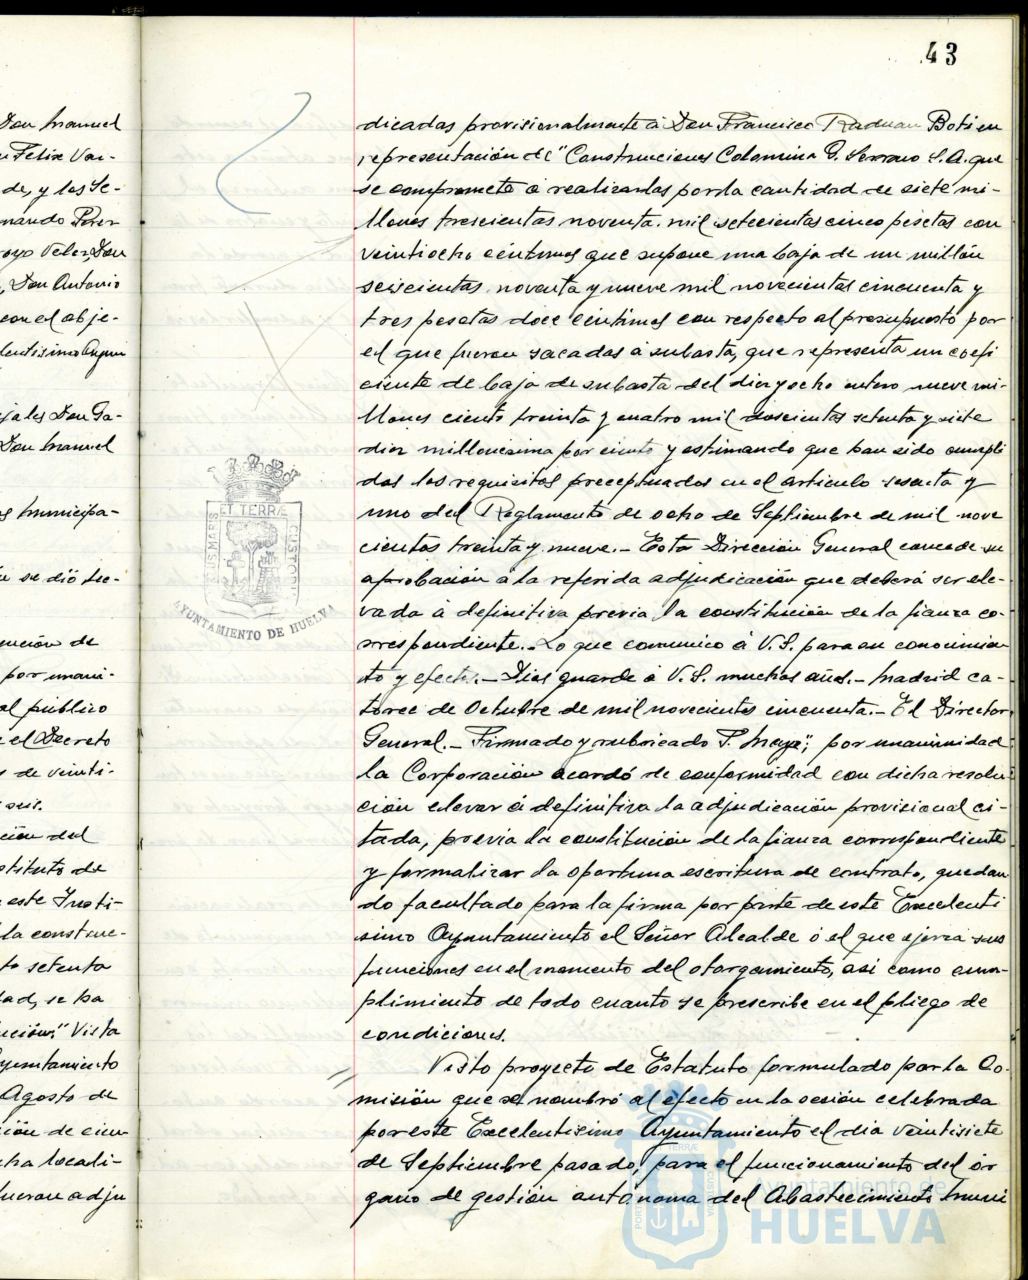 43
Don Manuel
Felix Vaz-
de, y los Se-
nando Perez
royo Velez Don
, Don Antonio
con el obje-
lentisimo Ayun
jales Don Ga-
Don Manuel
s Municipa-
se dió lec-
nución de
por unani-
al público
e el Decreto
s de veinti-
ción del
stituto de
este Insti-
la construc-
to setenta
dad, se ha
ución". Vista
yuntamiento
Agosto de
ción de cien
cha locali-
fueron adju
dicadas provisionalmente á Don Francisco Raduan Boti en
representación de "Construcciones Colomina G. Serrano S.A. que
se compromete á realizarlas por la cantidad de siete mi-
llones trescientas noventa mil setecientas cinco pesetas con
veintiocho céntimos que supone una baja de un millón
seiscientas noventa y nueve mil novecientas cincuenta y
tres pesetas doce céntimos con respecto al presupuesto por
el que fueron sacadas á subasta, que representa un coefi
ciente de baja de subasta del diez y ocho entero nueve mi-
llones ciento treinta y cuatro mil doscientas setenta y siete
diez millonesima por ciento y estimando que han sido cumpli
dos los requisitos preceptuados en el artículo sesenta y
uno del Reglamento de ocho de Septiembre de mil nove
cientos treinta y nueve.- Esta Dirección General concede su
aprobación á la referida adjudicación que deberá ser ele-
vada á definitiva previa la constitución de la fianza co-
rrespondiente.- Lo que comunico á V.S. para su conocimien
to y efectos.- Dios guarde á V.S. muchos años.- Madrid ca-
torce de Octubre de mil novecientos cincuenta.- El Director
General.- Firmado y rubricado F. Maya"; por unanimidad
la Corporación acordó de conformidad con dicha resolu
ción elevar á definitiva la adjudicación provisional ci-
tada, previa la constitución de la fianza correspondiente
y formalizar la oportuna escritura de contrato, quedan
do facultado para la firma por parte de este Excelentí
simo Ayuntamiento el Señor Alcalde ó el que ejerza sus
funciones en el momento del otorgamiento, así como cum-
plimiento de todo cuanto se prescribe en el pliego de
condiciones.
Visto proyecto de Estatuto formulado por la Co-
misión que se nombró al efecto en la sesión celebrada
por este Excelentísimo Ayuntamiento el dia veintisiete
de Septiembre pasado, para el funcionamiento del ór
gano de gestión autónoma del Abastecimiento Muni
PORTUS MARIS ET TERRÆ CUSTODIA
AYUNTAMIENTO DE HUELVA
Ayuntamiento de
HUELVA